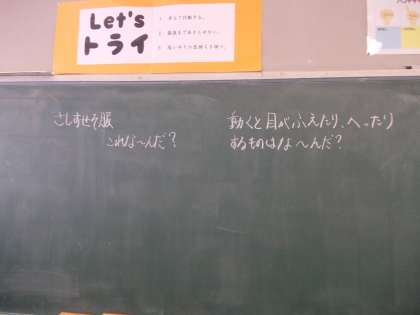 Let's
トライ
さしすせそ服
これな〜んだ?
動くと目がふえたり、へったり
するものはな〜んだ?